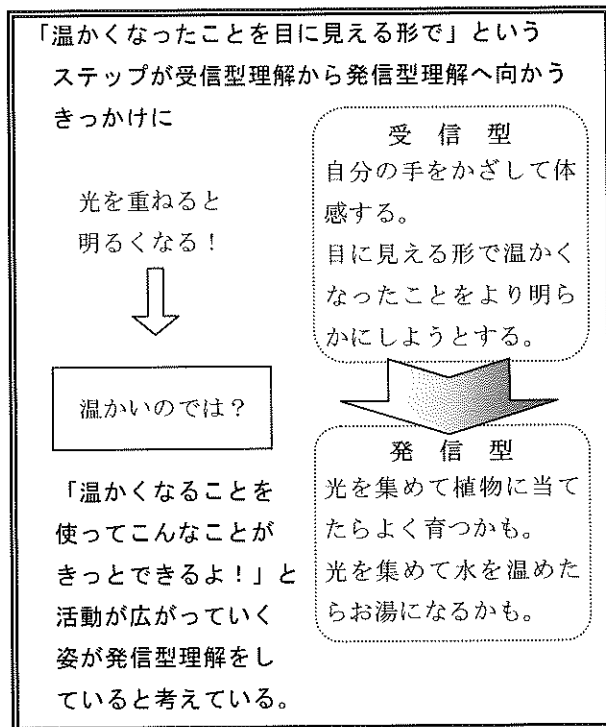 「温かくなったことを目に見える形で」という
ステップが受信型理解から発信型理解へ向かう
きっかけに
光を重ねると
明るくなる！
温かいのでは？
「温かくなることを
使ってこんなことが
きっとできるよ！」と
活動が広がっていく
姿が発信型理解をし
ていると考えている。
受信型
自分の手をかざして体
感する。
目に見える形で温かく
なったことをより明ら
かにしようとする。
発信型
光を集めて植物に当て
たらよく育つかも。
光を集めて水を温めた
らお湯になるかも。